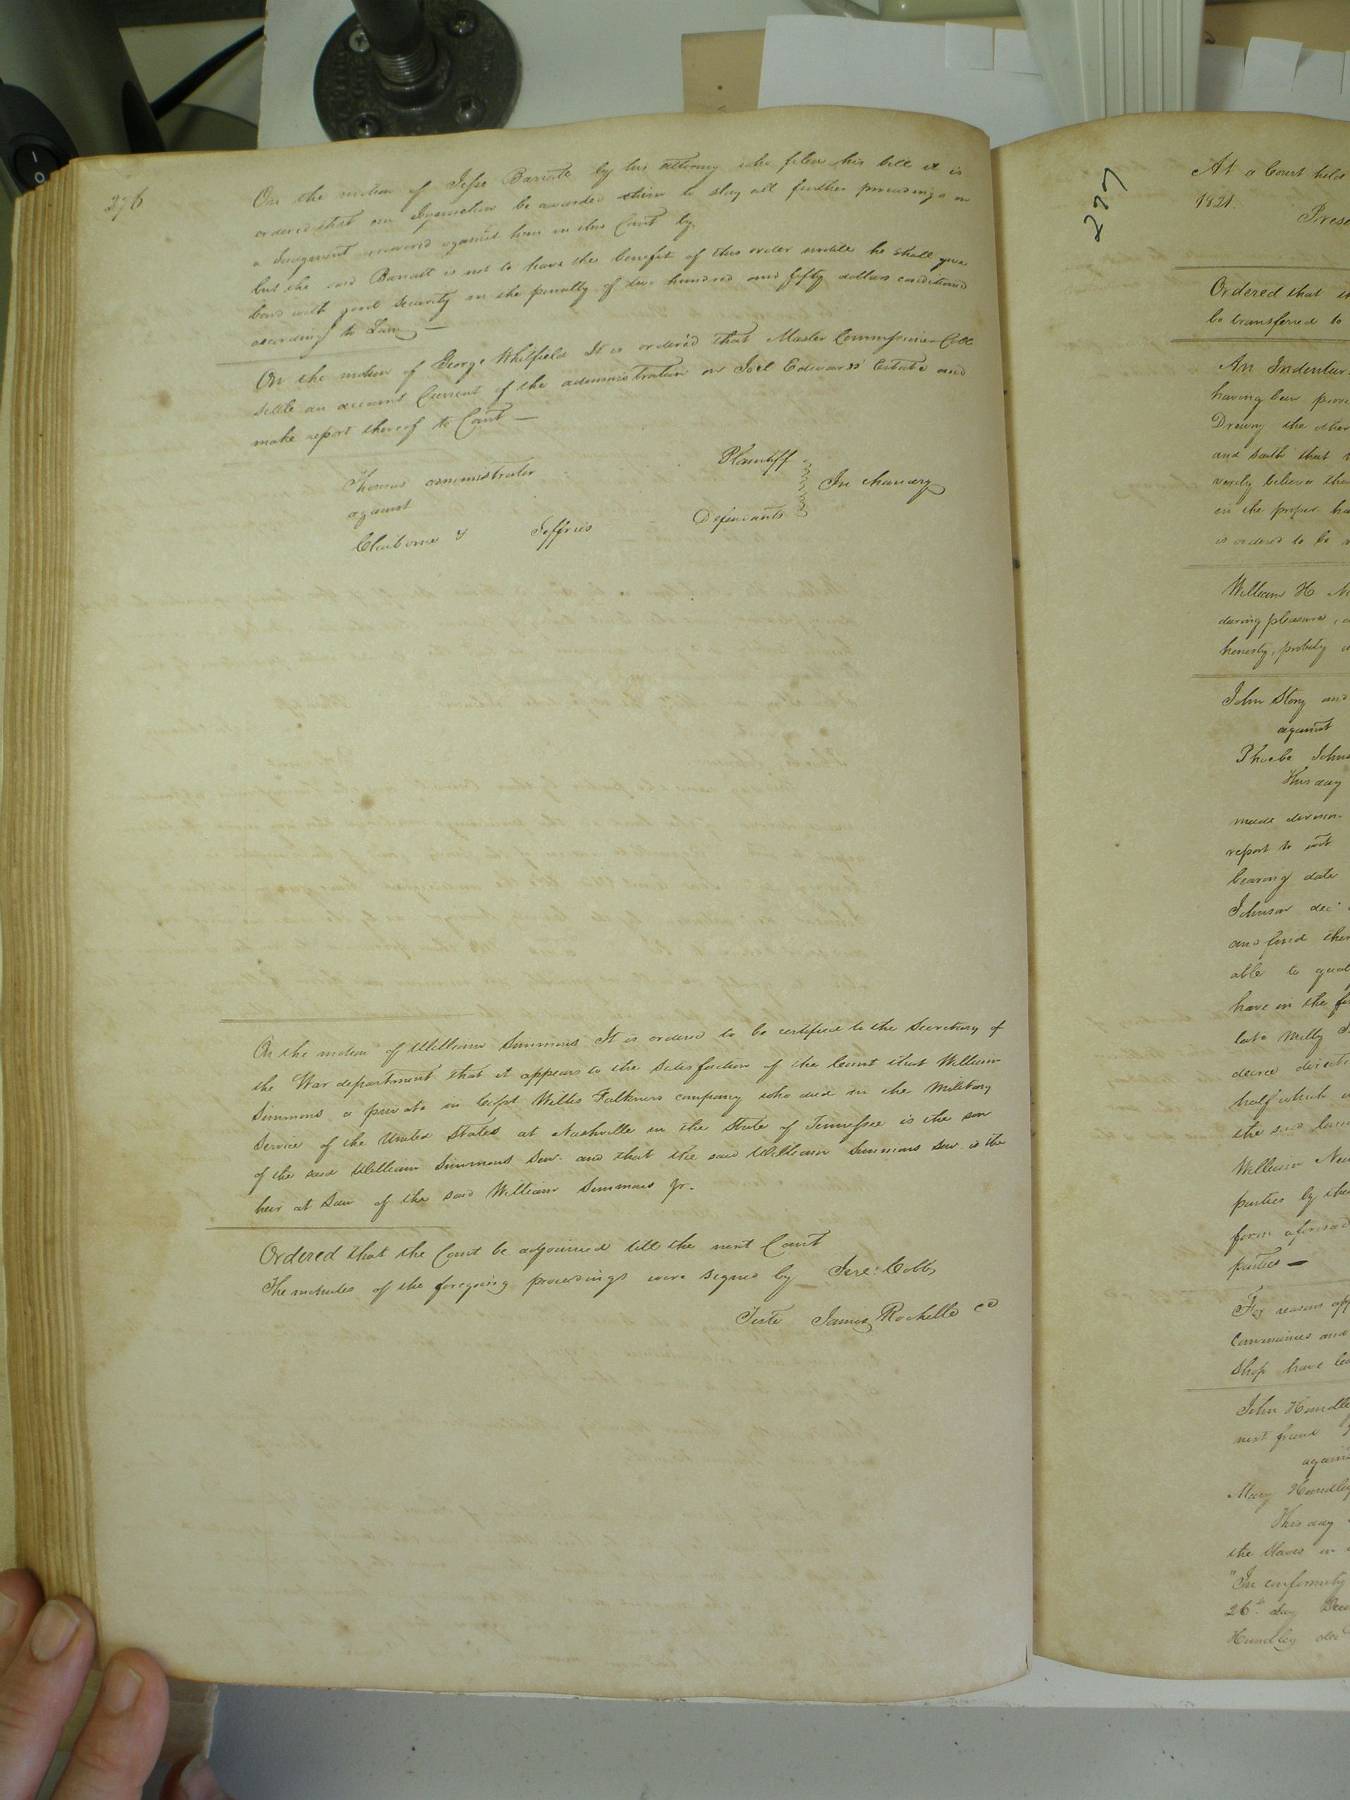 276
On the motion of Jesse Barrett by his attorney who files his bill it is
ordered that an Injunction be awarded him to stay all further proceedings on
a Judgment recovered against him in this Court by
but the said Barrett is not to have the benefit of this order untill he shall give
bond with good security in the penalty of two hundred and fifty dollars conditioned
according to Law —
On the motion of George Whitfield It is ordered that Master Commissioner Cobb
settle an account Current of the administration on Joel Edwards' Estate and
make report thereof to Court —
Thomas administrator Plaintiff
against In chancery
Claiborne & Jeffries Defendants
On the motion of William Simmons It is ordered to be certified to the Secretary of
the War department that it appears to the satisfaction of the Court that William
Simmons a private in Capt Willis Falkners company who died in the Military
Service of the United States at Nashville in the State of Tennessee is the son
of the said William Simmons Senr. and that the said William Simmons Senr. is the
heir at Law of the said William Simmons Jr.
Ordered that the Court be adjourned till the next Court
The minutes of the foregoing proceedings were signed by Jere: Cobb,
Teste James Rochelle CC
277
At a Court held
1821.
Prese
Ordered that
be transferred to
An Indentur
having been prov
Drewry the other
and saith that
verily believes the
in the proper ha
is ordered to be
William H
during pleasure,
honesty, probity
John Story and
against
Phoebe Johns
This day
made division
report to wit
bearing date
Johnson dec
and find the
able to
have in the
late Milly
decree direct
half which
the said
William New
parties by the
form aforesaid
parties —
For reasons app
Commissions and
Shop have le
John Hundle
next friend
again
Mary Hundley
This day
the slaves in
"In conformity
26th day Dec
Hundley dec